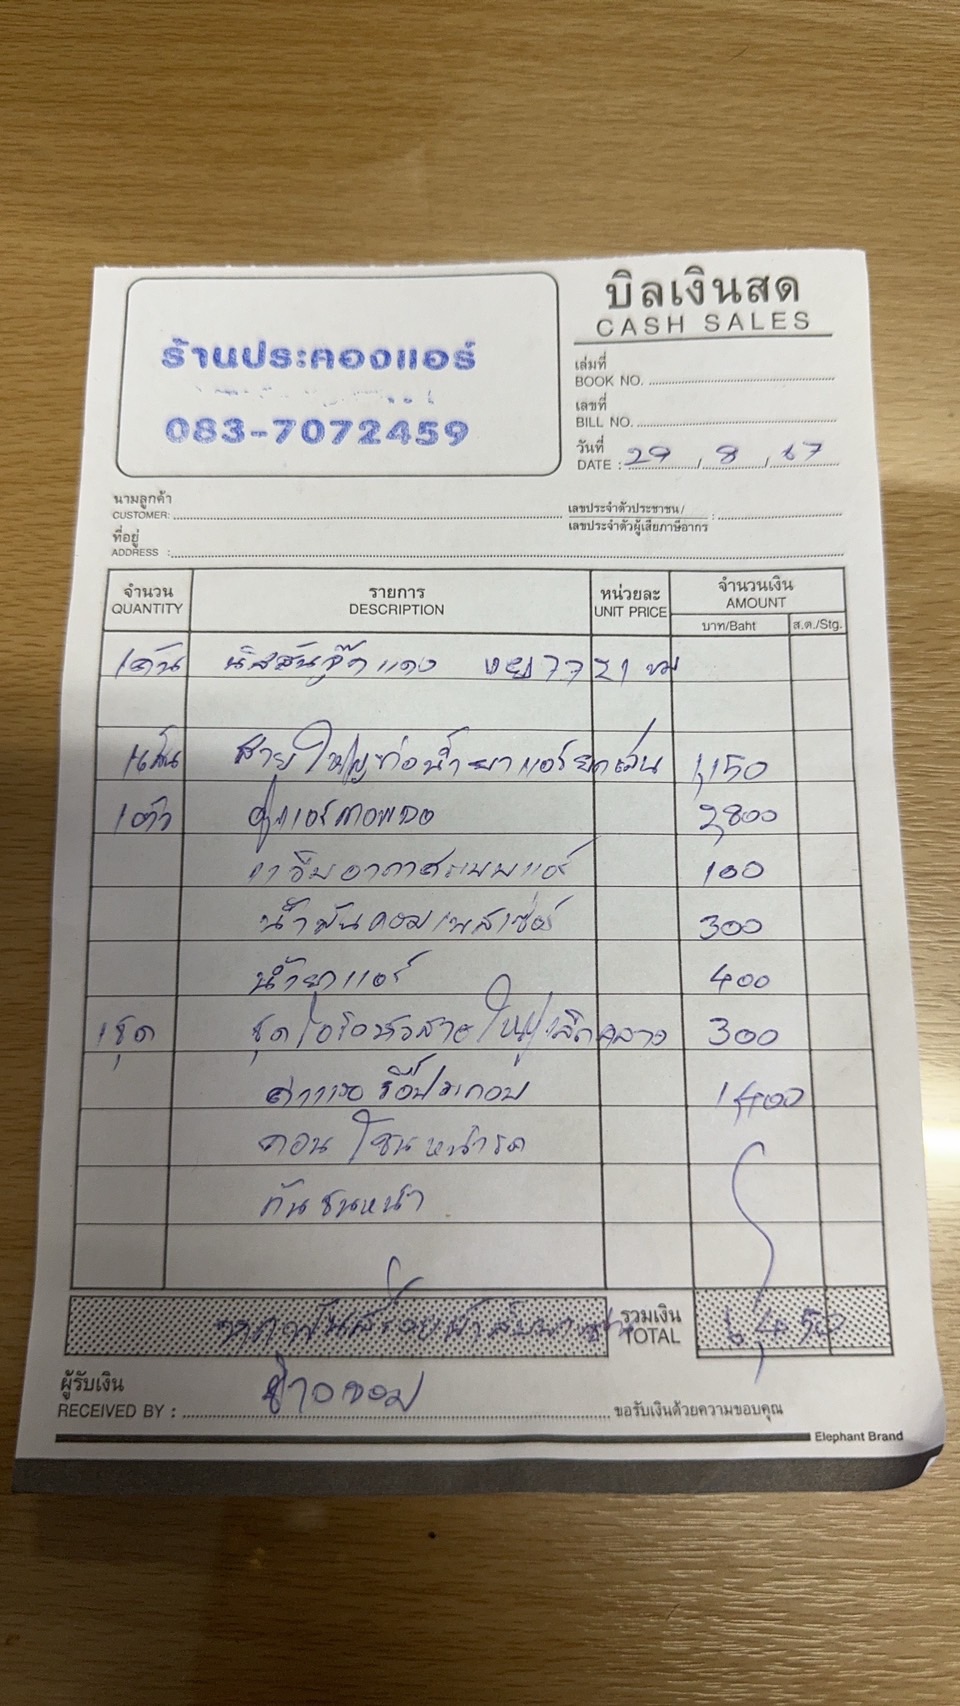 บิลเงินสด
CASH SALES
ร้านประคองแอร์
083-7072459
เล่มที่
BOOK NO.
เลขที่
BILL NO.
วันที่
DATE : 29 / 8 / 67
นามลูกค้า
CUSTOMER:
เลขประจำตัวประชาชน/ :
เลขประจำตัวผู้เสียภาษีอากร
ที่อยู่
ADDRESS :
จำนวน รายการ หน่วยละ จำนวนเงิน
QUANTITY DESCRIPTION UNIT PRICE AMOUNT
บาท/Baht ส.ต./Stg.
1คัน นิสสันจู๊คแดง 7721
1เส้น สายใหญ่ท่อน้ำยาแอร์ 1,150
1ตัว ตู้แอร์ 2,800
อากาศระบบแอร์ 100
น้ำมันคอมเพลสเซ่อร์ 300
น้ำยาแอร์ 400
1ชุด ชุดโอริงหัวสายใหญ่เล็กกลาง 300
ค่าแรงรื้อประกอบ 1,400
คอนโซนหน้ารถ
กันชนหน้า
รวมเงิน
TOTAL 6,450
ผู้รับเงิน
RECEIVED BY : ขอรับเงินด้วยความขอบคุณ
Elephant Brand